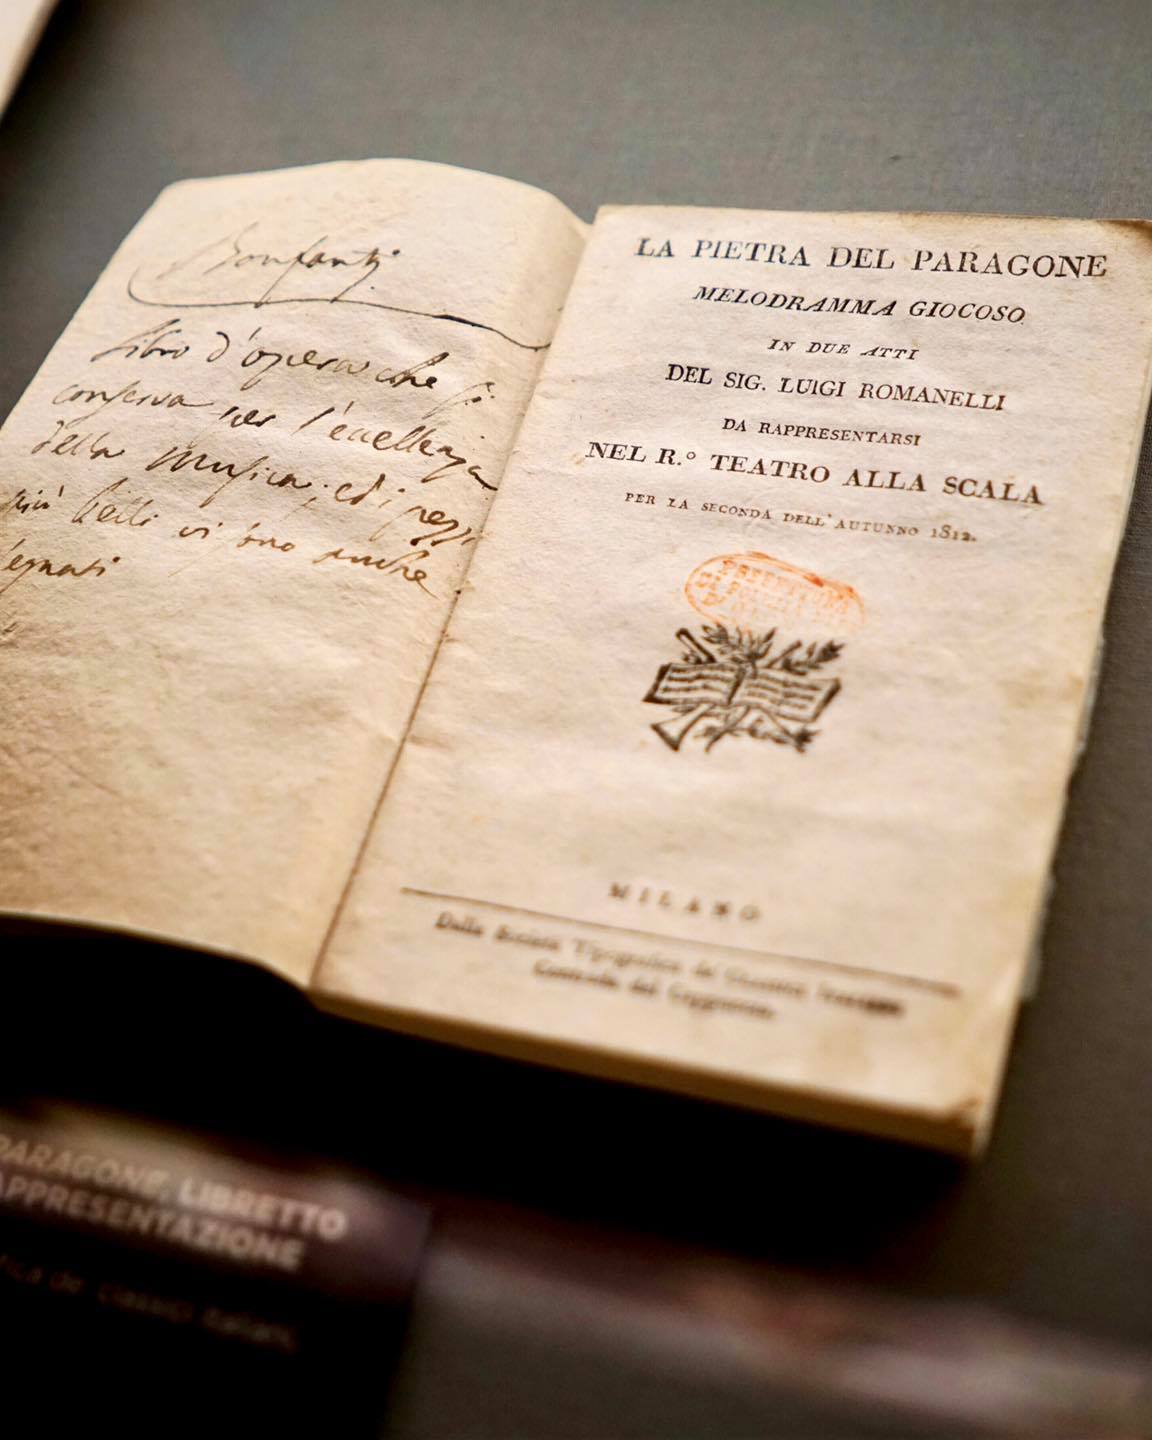 Bonfanti
Libro d'opera che si
conserva per l'eccellenza
della Musica; ed i pezzi
più belli vi sono anche
segnati
LA PIETRA DEL PARAGONE
MELODRAMMA GIOCOSO
IN DUE ATTI
DEL SIG. LUIGI ROMANELLI
DA RAPPRESENTARSI
NEL R.º TEATRO ALLA SCALA
PER LA SECONDA DELL'AUTUNNO 1812.
PREFETTURA
DI POLIZIA
MILANO
Dalla Società Tipografica de' Classici Italiani
Contrada del Cappuccio.
PARAGONE, LIBRETTO
RAPPRESENTAZIONE
de' Classici Italiani,